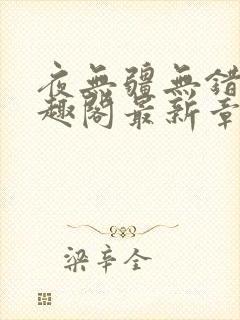 夜無疆無錯
趣閣最新章
梁辛全